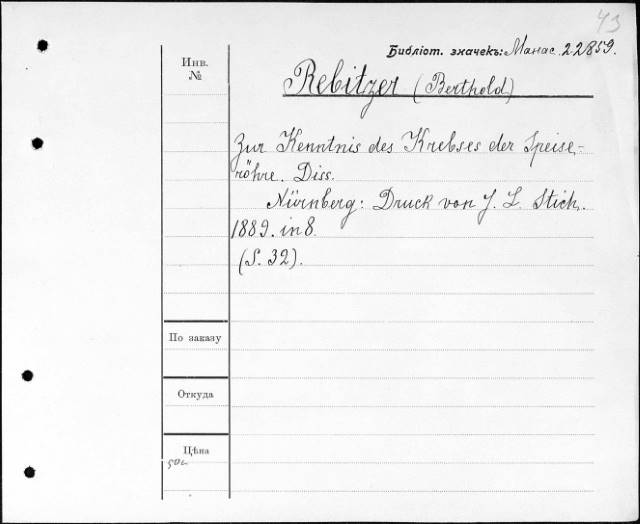 43
Библіот. значекъ: Манас. 22859.
Инв.
№
Rebitzer (Berthold)
Zur Kenntnis des Krebses der Speise-
röhre. Diss.
Nürnberg: Druck von J. L. Stich.
1889. in 8.
(S. 32).
По заказу
Откуда
Цѣна